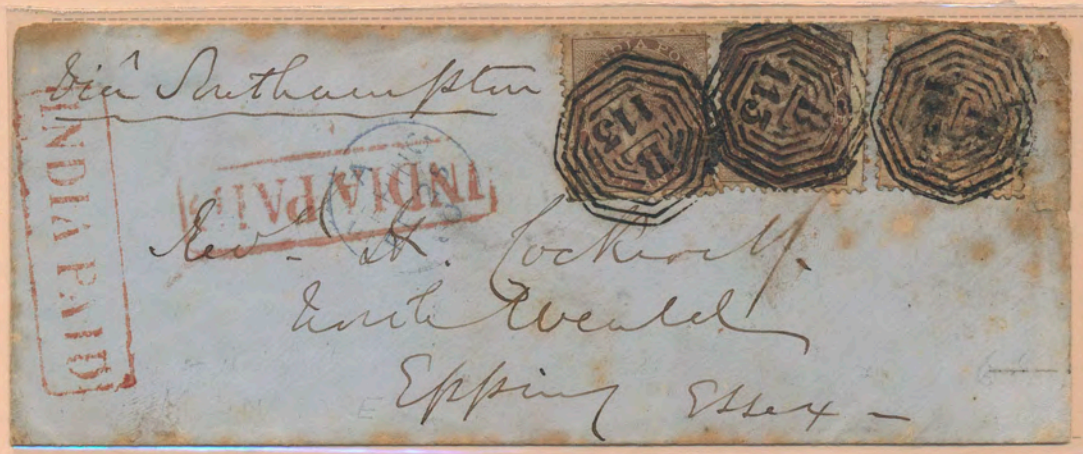 Via Southampton
INDIA PAID
INDIA PAID
INDIA PO
B
115
B
115
Rev. H. Cockrell.
North Weald
Epping Essex -